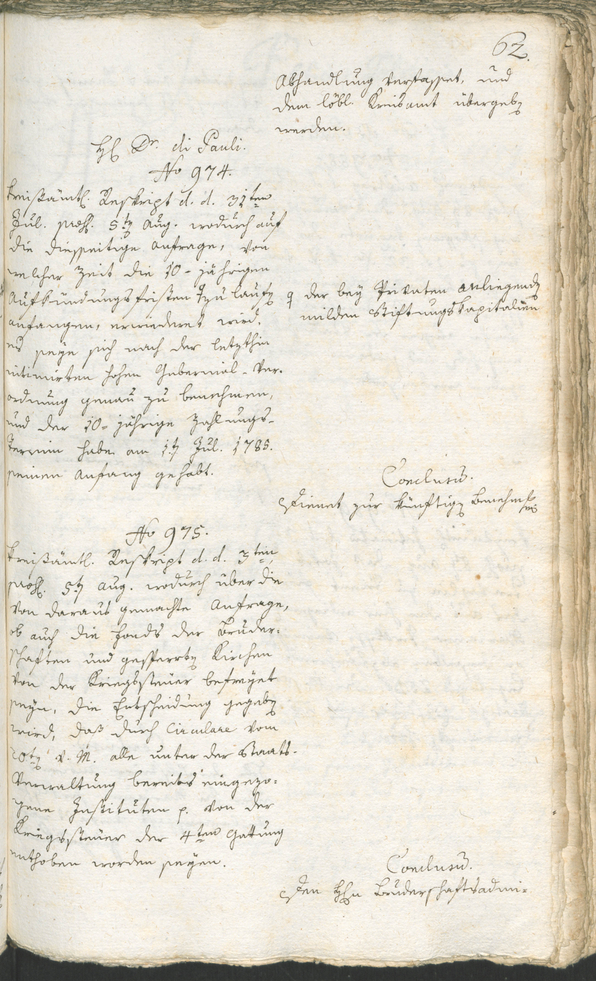 62.
Abhandlung verfasset, und
dem löbl. Kreisamt übergeben
werden.
H. Dr. di Pauli.
No 974.
Kreisämtl. Reskript d. d. 31ten
Jul. praes. 5ten Aug. wodurch auf
die diesseitige Anfrage, von
welcher Zeit die 10-jährigen
Aufkündungsfristen zu laufen
anfangen, erwiedert wird,
es seye sich nach der letzthin
intimirten hohen Gubernial-Ver-
ordnung genau zu benehmen,
und der 10-jährige Zahlungs-
Termin habe am 1ten Jul. 1788.
seinen Anfang gehabt.
der bey Privaten anliegenden
milden Stiftungskapitalien
Conclusum.
Dienet zur künftigen Benehmung
No 975.
Kreisämtl. Reskript d. d. 3ten
praes. 5ten Aug. wodurch über die
von daraus gemachte Anfrage,
ob auch die Fonds der Bruder-
schaften und gesperrten Kirchen
von der Kriegssteuer befreyet
seyn, die Entscheidung gegeben
wird, daß durch Circulare vom
v. M. alle unter der Staats-
Verwaltung bereits eingezo-
gene Instituten p. von der
Kriegssteuer der 4ten Gattung
enthoben worden seyen.
Conclusum.
Den Hhn Bruderschaftsadmi-